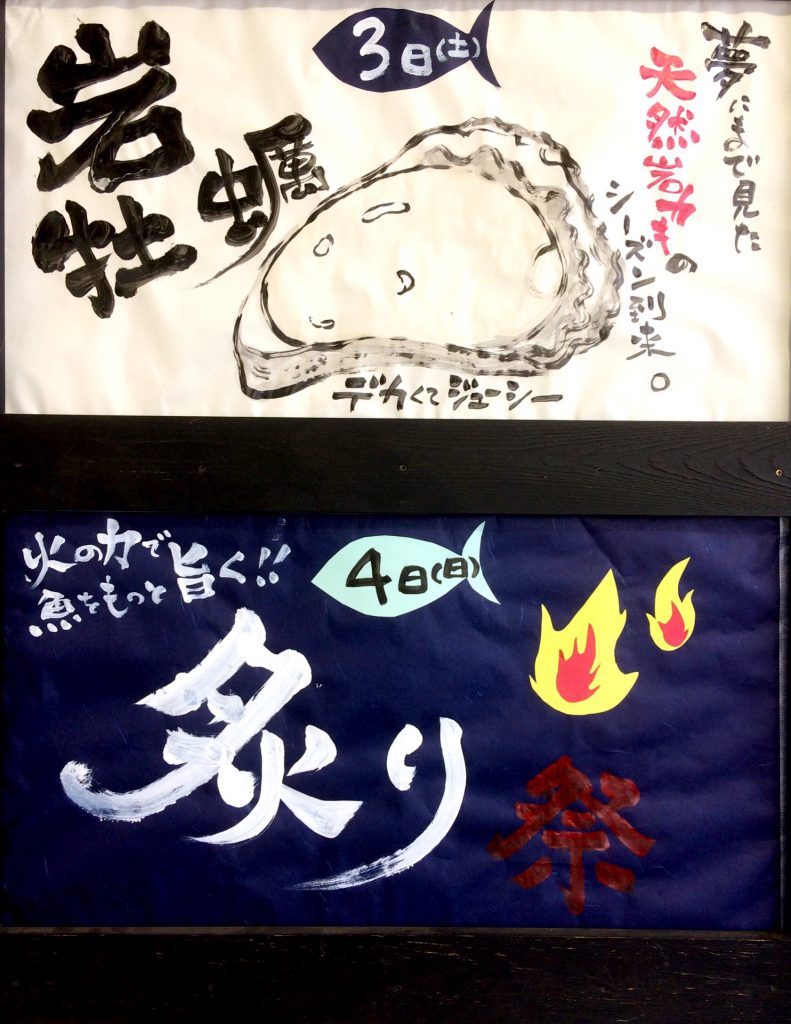 3日(土)
夢にまで見た
天然岩カキの
シーズン到来。
岩牡蠣
デカくてジューシー
火の力で
魚をもっと旨く!!
4日(日)
炙り
祭